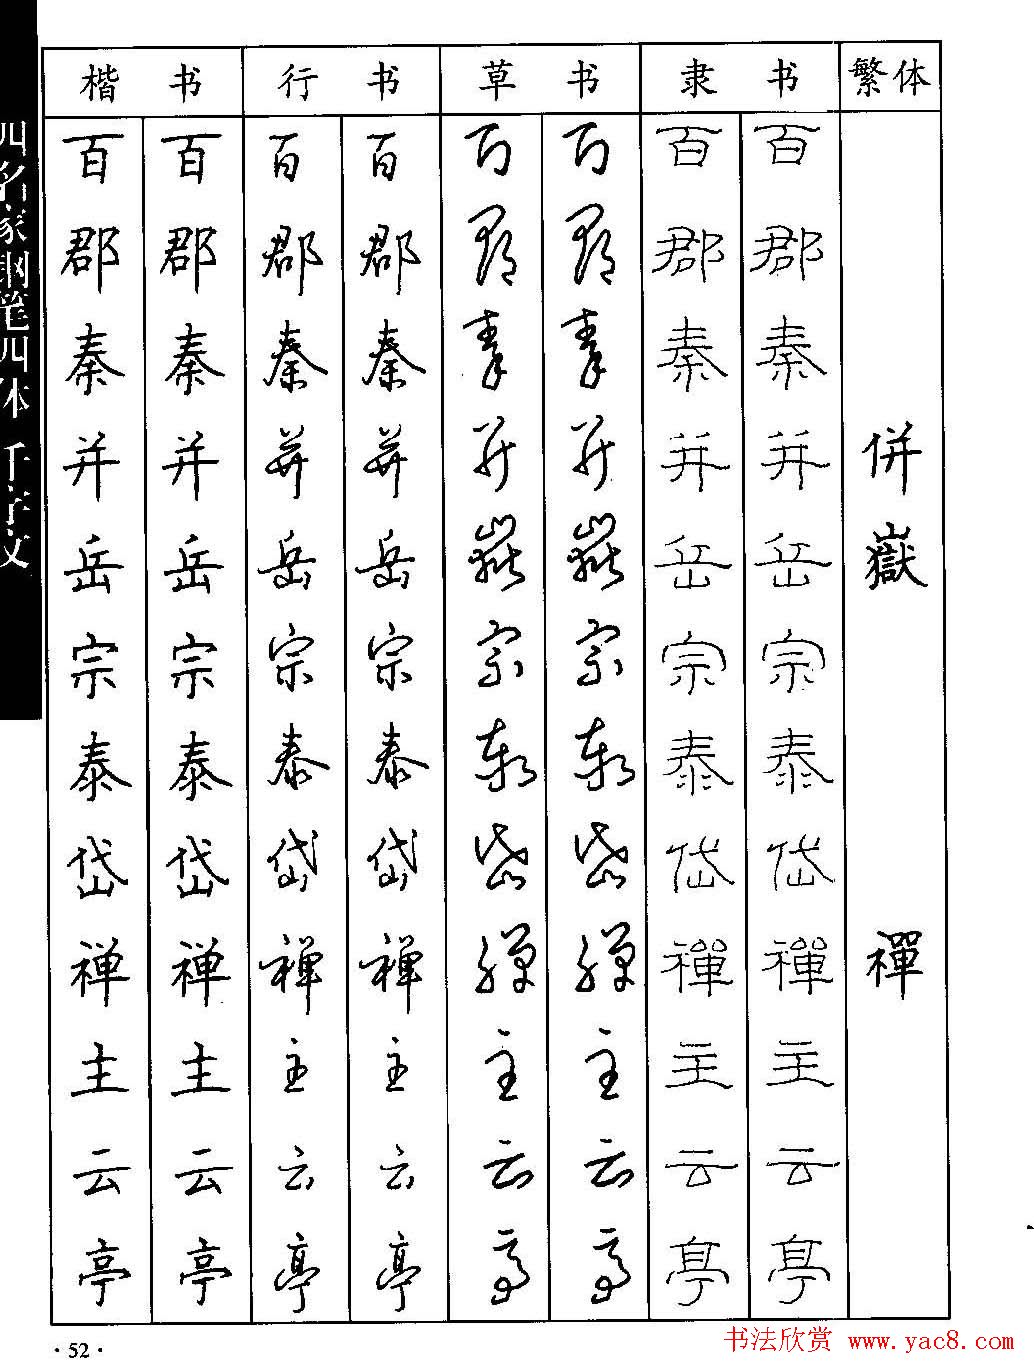 四名家钢笔四体千字文
楷书 行书 草书 隶书 繁体
百 百 百 百 百 百 百 百
郡 郡 郡 郡 郡 郡 郡 郡
秦 秦 秦 秦 秦 秦 秦 秦
并 并 并 并 并 并 并 并 併
岳 岳 岳 岳 嶽 嶽 岳 岳 嶽
宗 宗 宗 宗 宗 宗 宗 宗
泰 泰 泰 泰 泰 泰 泰 泰
岱 岱 岱 岱 岱 岱 岱 岱
禅 禅 禅 禅 禪 禪 禪 禪 禪
主 主 主 主 主 主 主 主
云 云 云 云 云 云 云 云
亭 亭 亭 亭 亭 亭 亭 亭
·52·
书法欣赏 www.yac8.com